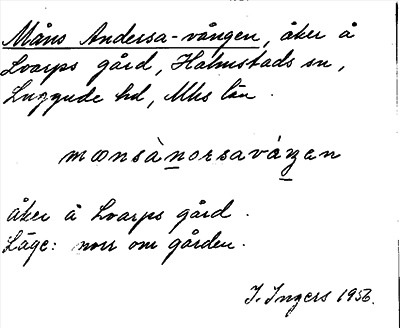 Måns Andersa-vången, åker å
Svarps gård, Halmstads sn,
Luggude hd, Mhs län.
mœnsànorsaváŋen
åker å Svarps gård.
Läge: norr om gården.
I. Ingers 1956.